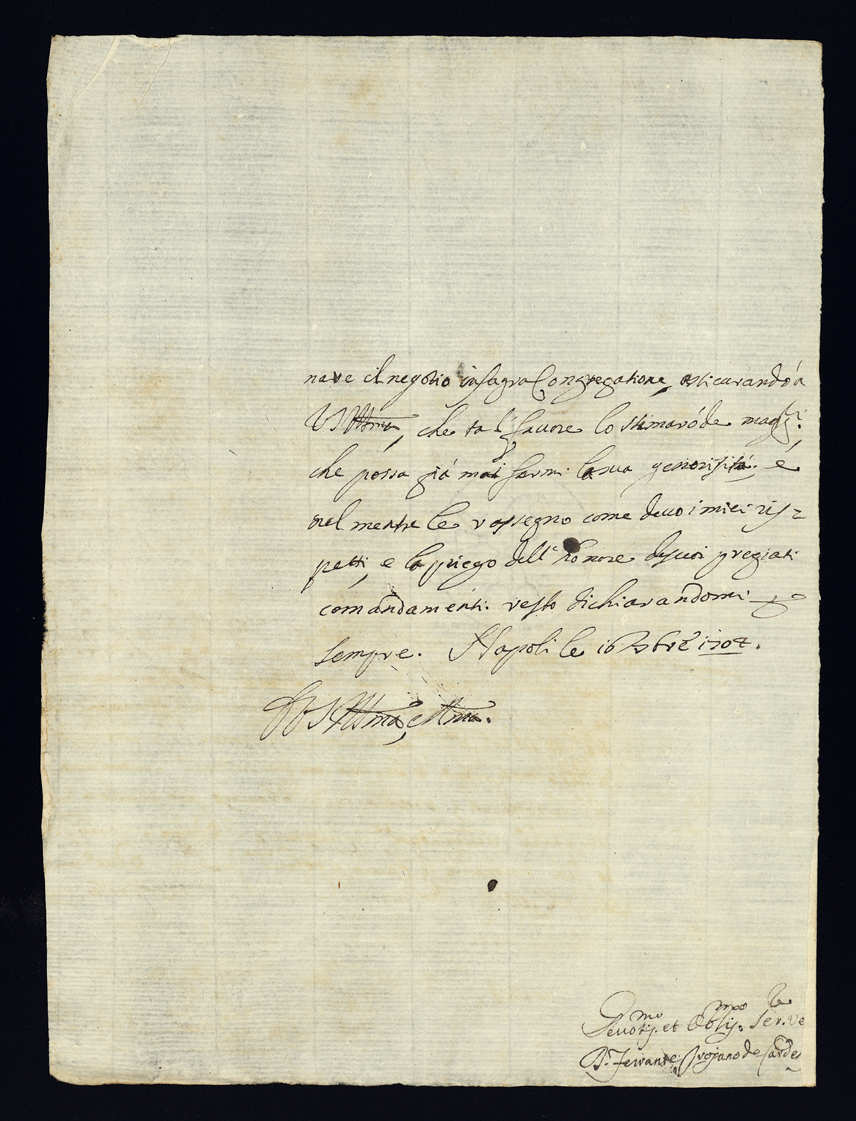 nare il negotio in sagra Congregatione, assicurando à
V S Illma, che tal favore lo stimarò de magg.r
che possa già mai farmi la sua generosità, è
nel mentre le rassegno come devo i miei ris=
petti, e la priego dell' honore de suoi pregiati
comandamenti. resto dichiarandomi
sempre. Napoli le 16 1704.
V S Illma, e
Devotis.mo et Oblig.mo Ser.re
D. Ferrante Trojano de